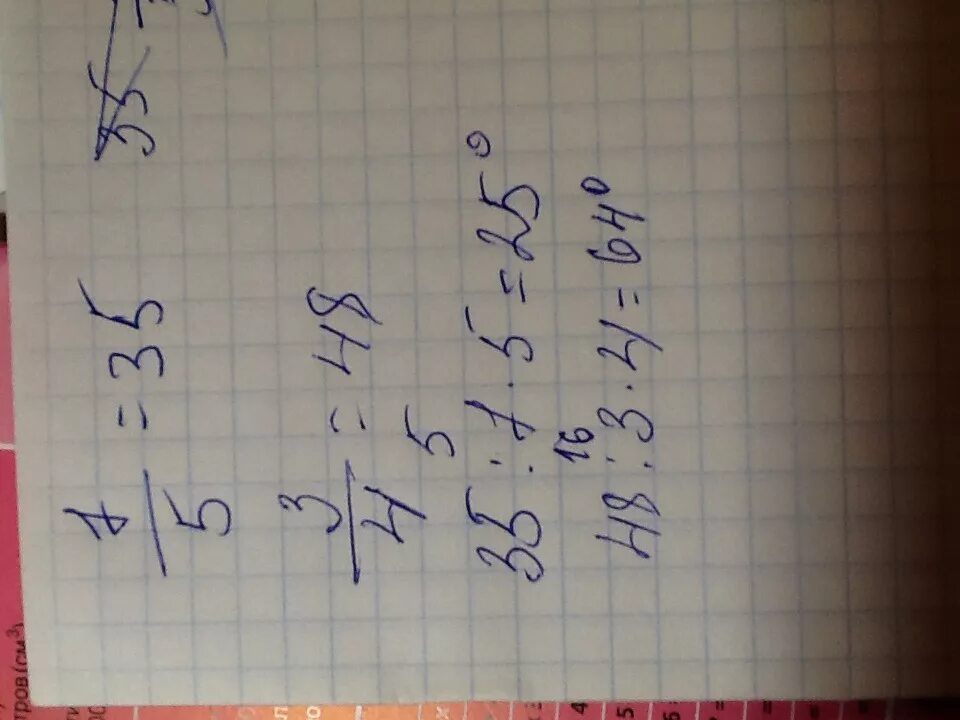 7/5 = 35
3/4 = 48
5
35 : 7 · 5 = 25°
16
48 : 3 · 4 = 64°
35
тров (см³)